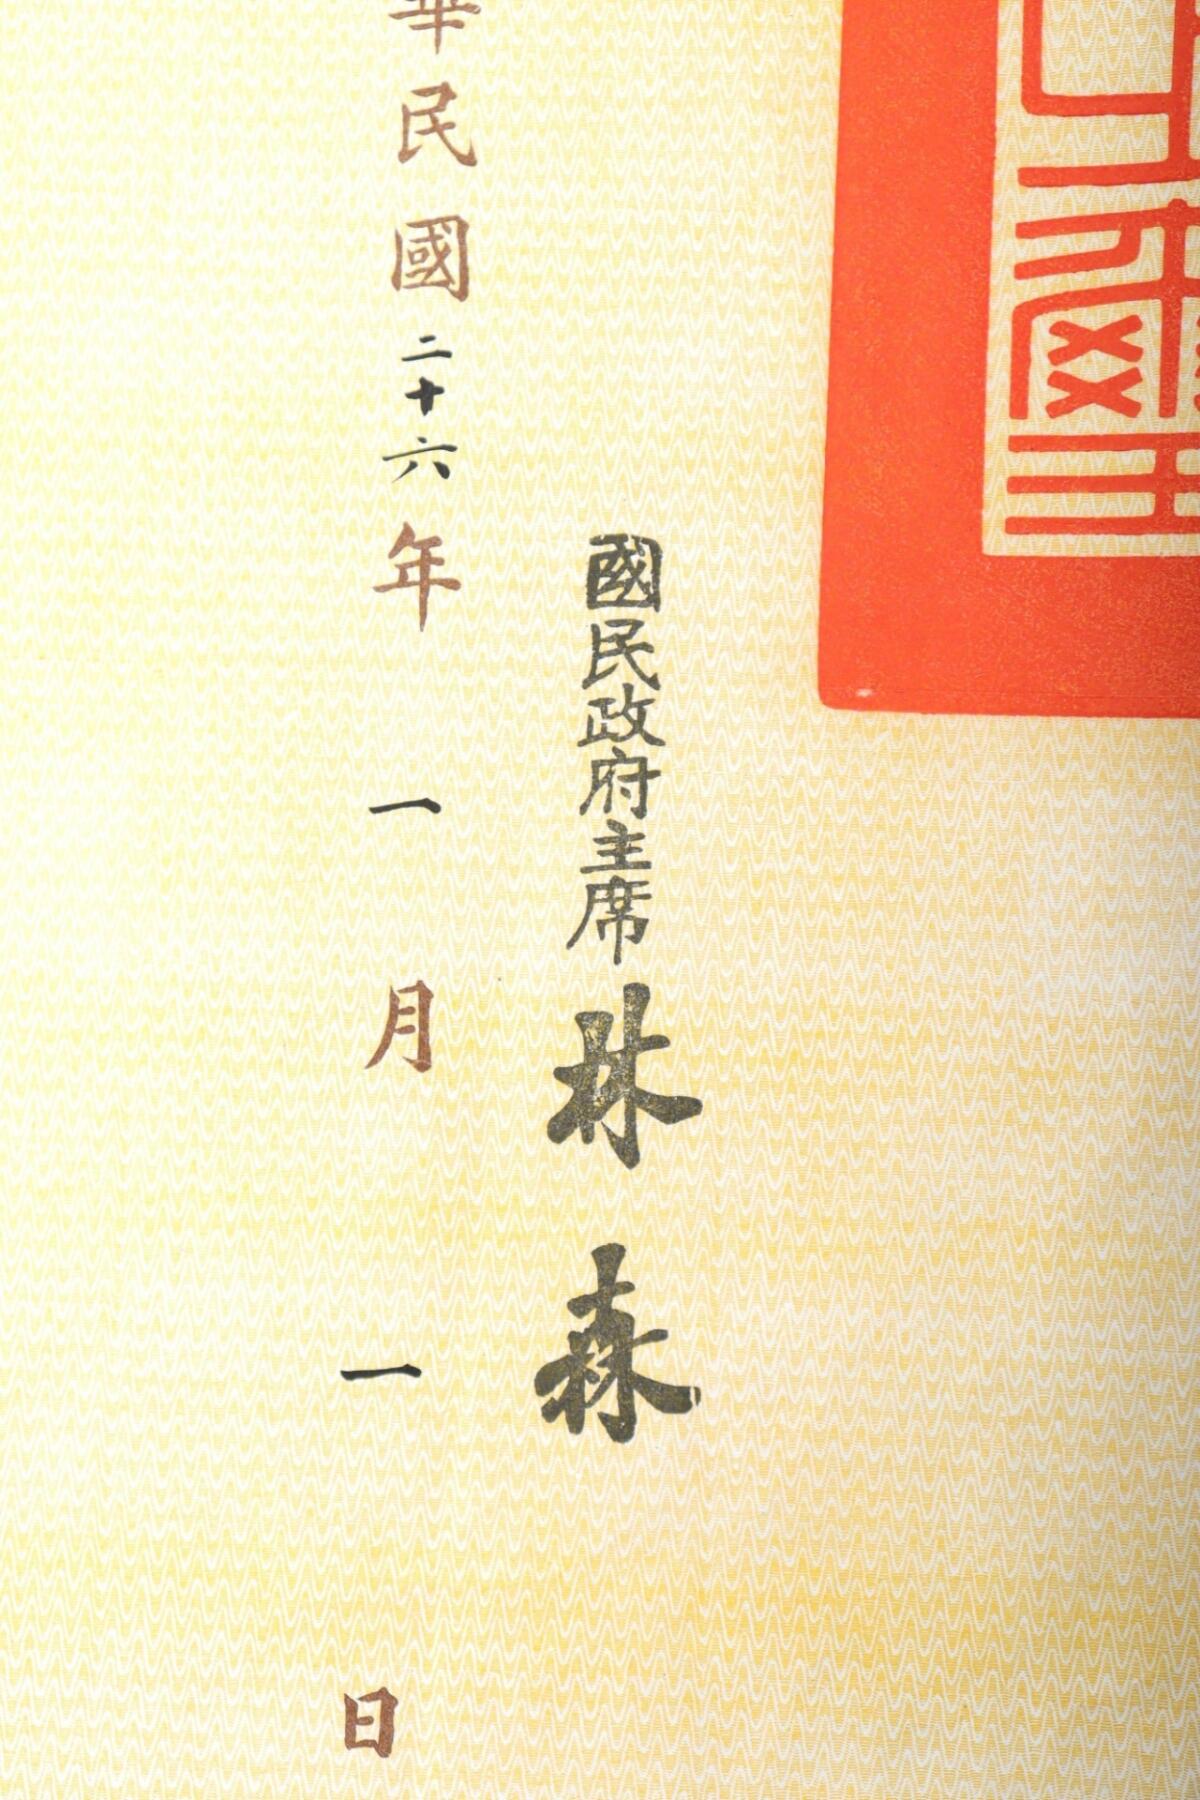 國民政府主席林森
華民國二十六年一月一日